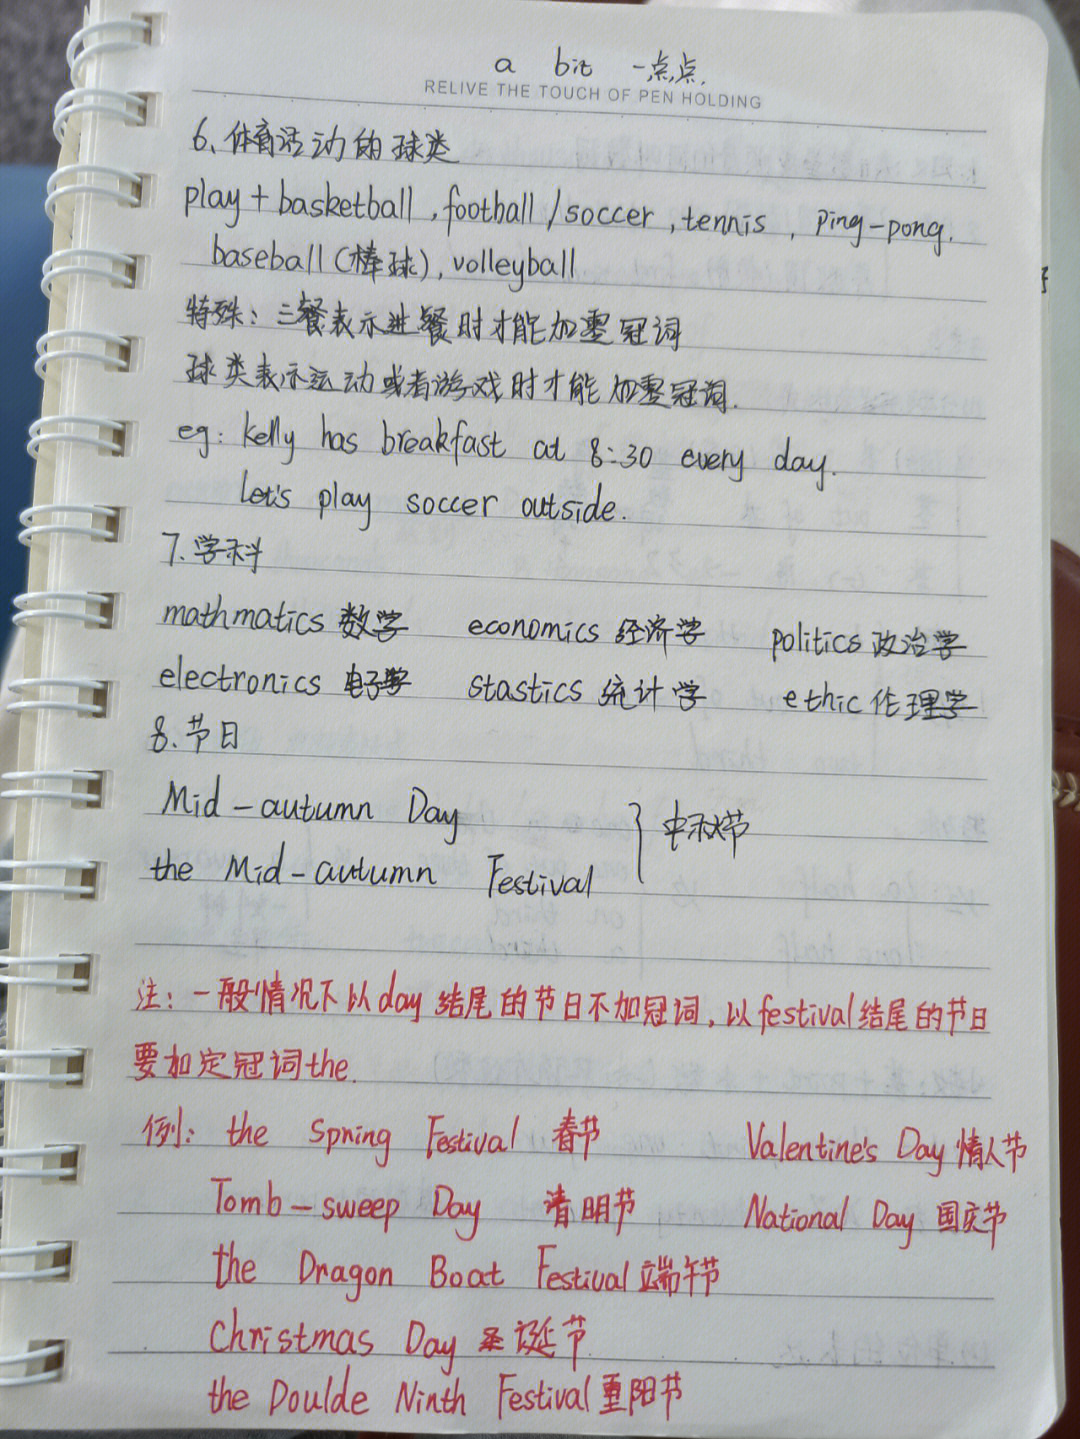 a bit 一点点.
RELIVE THE TOUCH OF PEN HOLDING
6、体育活动的球类
play + basketball, football / soccer, tennis, ping-pong.
baseball (棒球), volleyball
特殊: 三餐表示进餐时才能加零冠词
球类表示运动或者游戏时才能加零冠词.
eg: kelly has breakfast at 8:30 every day.
let's play soccer outside.
7. 学科
mathmatics 数学 economics 经济学 politics 政治学
electronics 电子学 stastics 统计学 ethic 伦理学
8. 节日
Mid-autumn Day
the Mid-autumn Festival } 中秋节
注: 一般情况下以day结尾的节日不加冠词, 以festival结尾的节日
要加定冠词the.
例: the Spring Festival 春节 Valentine's Day 情人节
Tomb-sweep Day 清明节 National Day 国庆节
the Dragon Boat Festival 端午节
Christmas Day 圣诞节
the Doulde Ninth Festival 重阳节